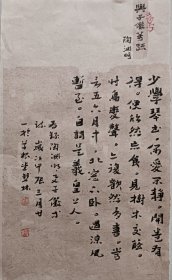 與子儼等疏
陶淵明
少學琴書偶愛閒靜開卷有
得便欣然忘食見樹木交蔭
時鳥變聲亦復歡然有喜嘗
言五六月中北窗下臥遇涼風
暫至自謂是羲皇上人
錄陶淵明與子儼等
疏歲次三月廿